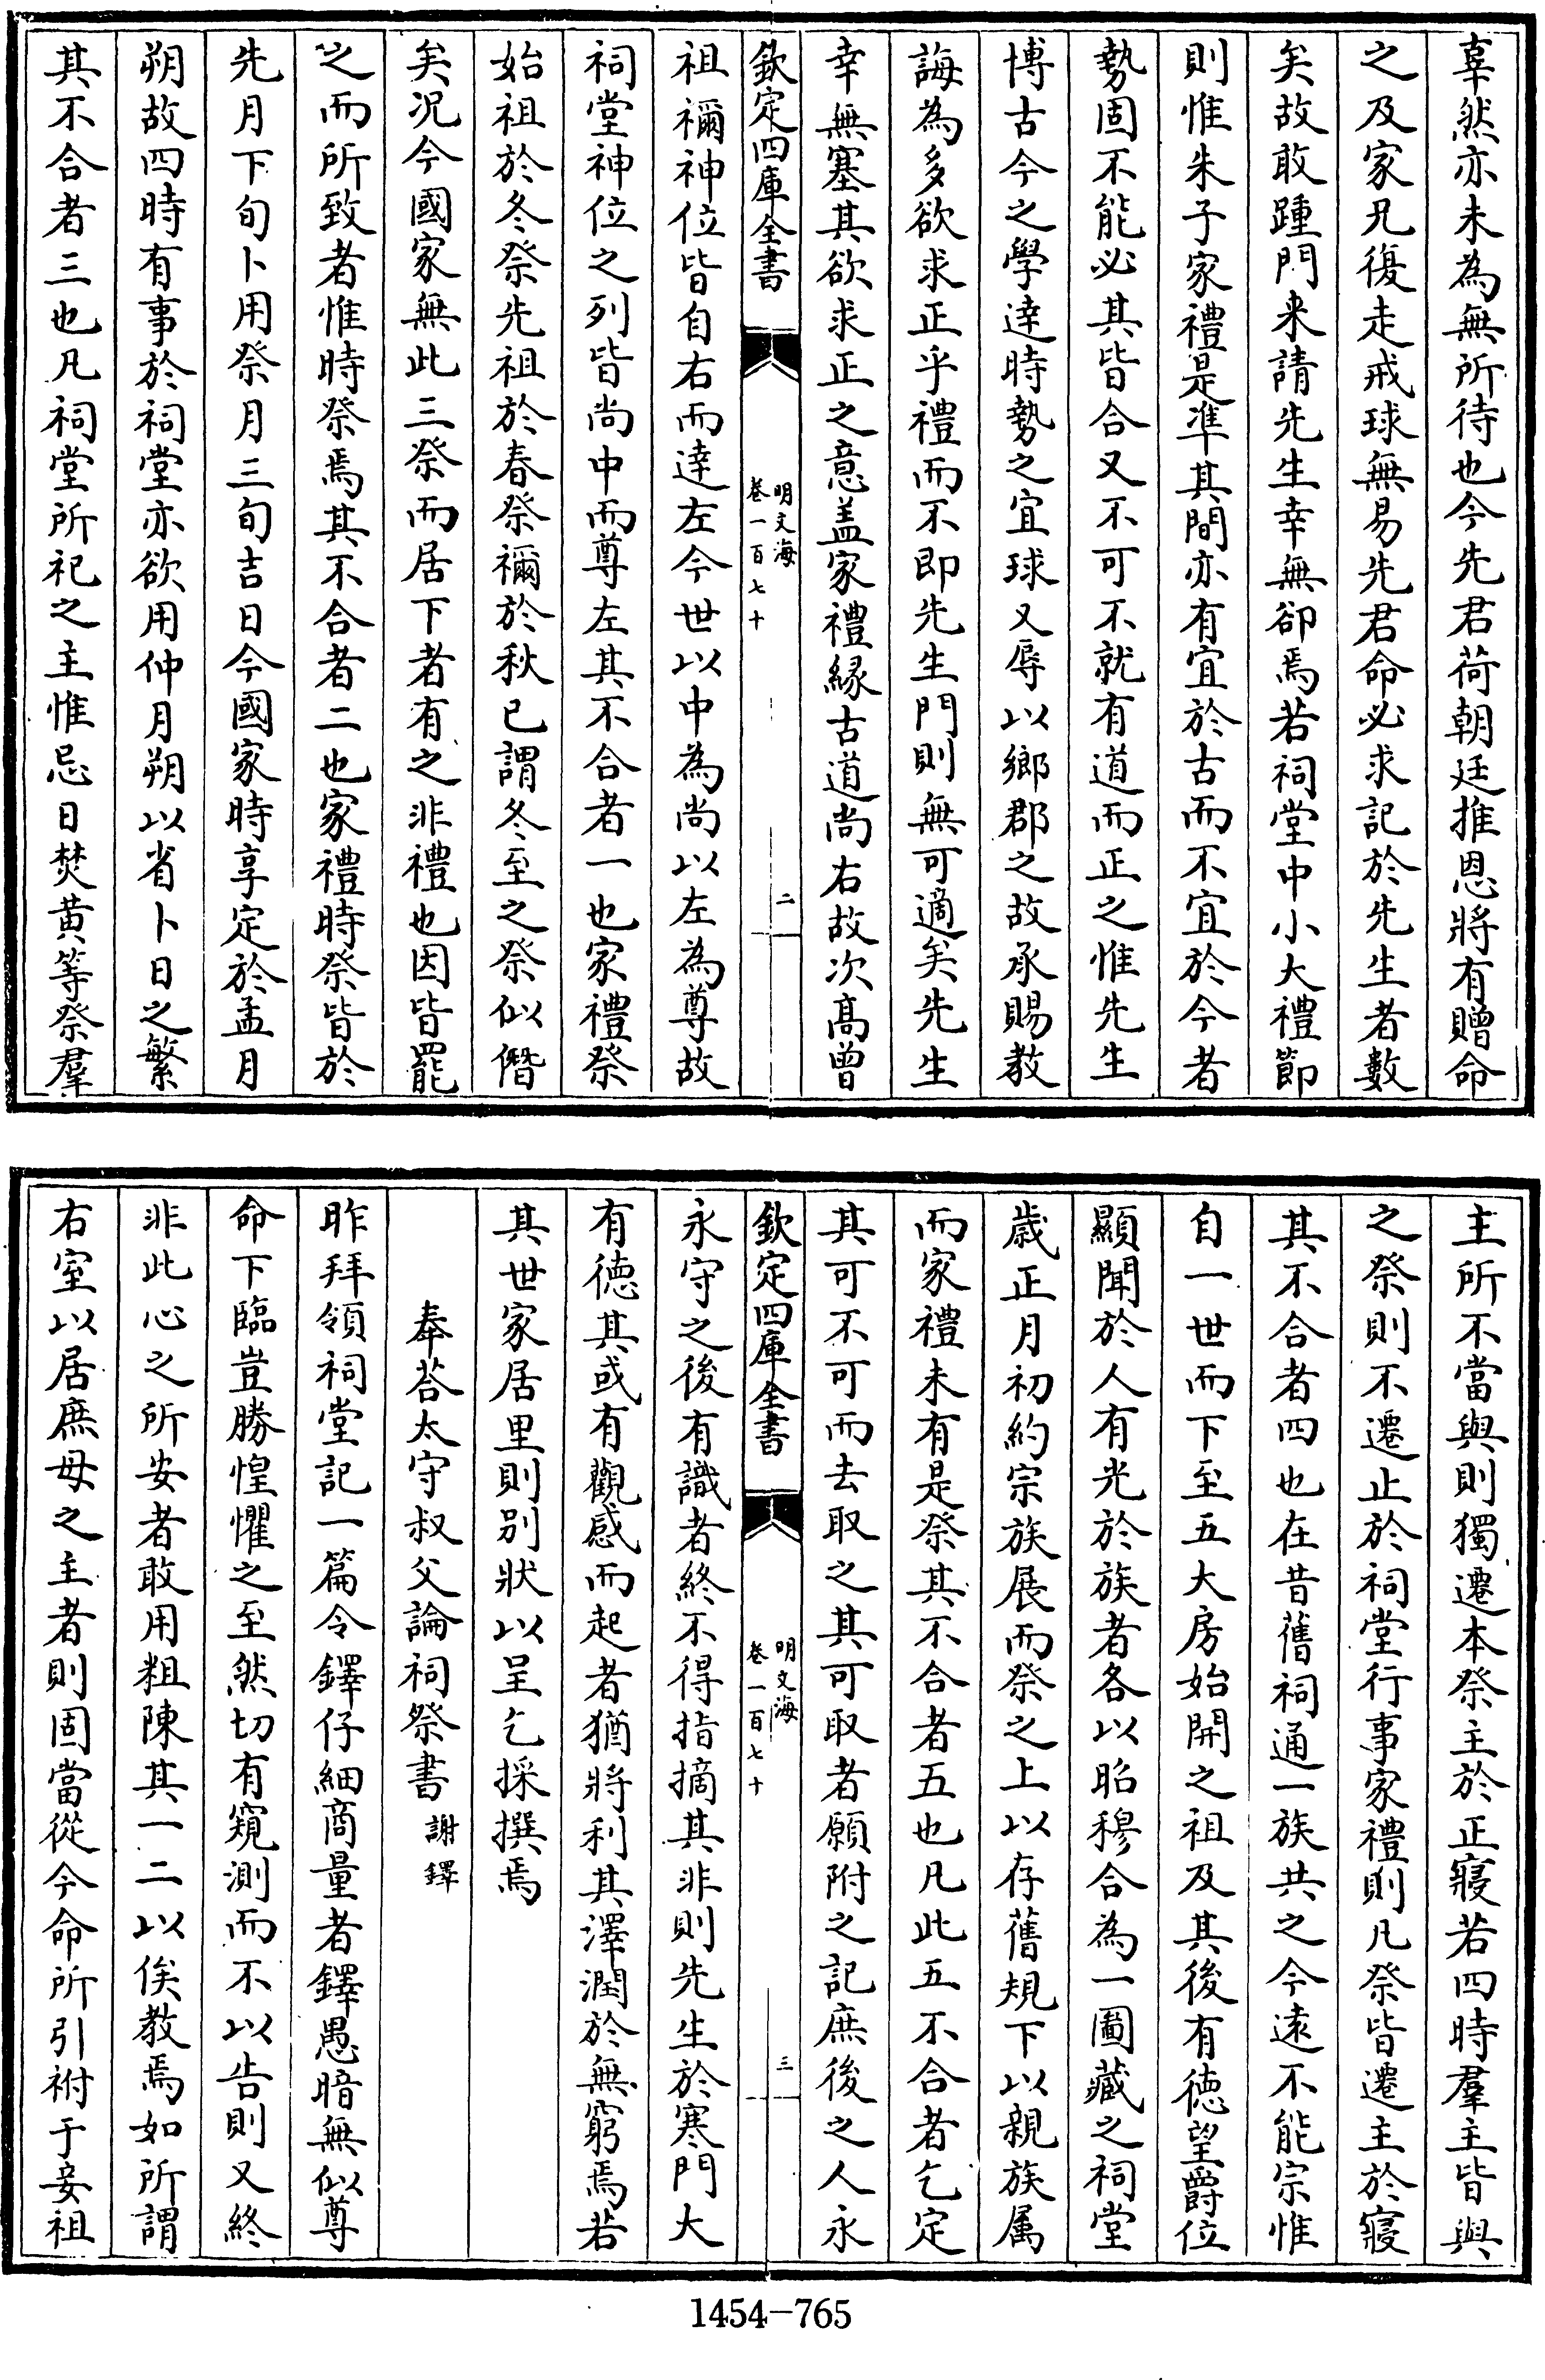 辜然亦未為無所待也今先君荷朝廷推恩將有贈命
之及家兄復走戒球無易先君命必求記於先生者數
矣故敢踵門来請先生幸無卻焉若祠堂中小大禮節
則惟朱子家禮是準其間亦有宜於古而不宜於今者
勢固不能必其皆合又不可不就有道而正之惟先生
博古今之學達時勢之宜球又辱以鄉郡之故承賜教
誨為多欲求正乎禮而不即先生門則無可適矣先生
幸無塞其欲求正之意盖家禮緣古道尚右故次高曾
欽定四庫全書
明文海
卷一百七十
二
祖禰神位皆自右而達左今世以中為尚以左為尊故
祠堂神位之列皆尚中而尊左其不合者一也家禮祭
始祖於冬祭先祖於春祭禰於秋已謂冬至之祭似僭
矣况今國家無此三祭而居下者有之非禮也因皆罷
之而所致者惟時祭焉其不合者二也家禮時祭皆於
先月下旬卜用祭月三旬吉日今國家時享定於孟月
朔故四時有事於祠堂亦欲用仲月朔以省卜日之繁
其不合者三也凡祠堂所祀之主惟忌日焚黄等祭羣
主所不當與則獨遷本祭主於正寢若四時羣主皆與
之祭則不遷止於祠堂行事家禮則凡祭皆遷主於寢
其不合者四也在昔舊祠通一族共之今遠不能宗惟
自一世而下至五大房始開之祖及其後有徳望爵位
顯聞於人有光於族者各以昭穆合為一圖藏之祠堂
歲正月初約宗族展而祭之上以存舊規下以親族属
而家禮未有是祭其不合者五也凡此五不合者乞定
其可不可而去取之其可取者願附之記庶後之人永
欽定四庫全書
明文海
卷一百七十
三
永守之後有識者終不得指摘其非則先生於寒門大
有德其或有觀感而起者猶將利其澤潤於無窮焉若
其世家居里則别狀以呈乞採撰焉
奉荅太守叔父論祠祭書 謝鐸
昨拜領祠堂記一篇令鐸仔細商量者鐸愚暗無似尊
命下臨豈勝惶懼之至然切有窺測而不以告則又終
非此心之所安者敢用粗陳其一二以俟教焉如所謂
右室以居庶母之主者則固當從今命所引祔于妾祖
1454-765